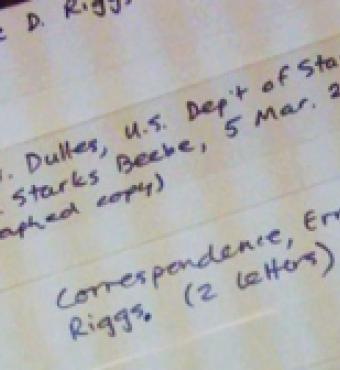 D. Riggs
. Dulles, U.S. Dep't of Sta
Starks Beebe, 5 Mar. 2
aphed copy)
Correspondence, Err
Riggs. (2 letters)